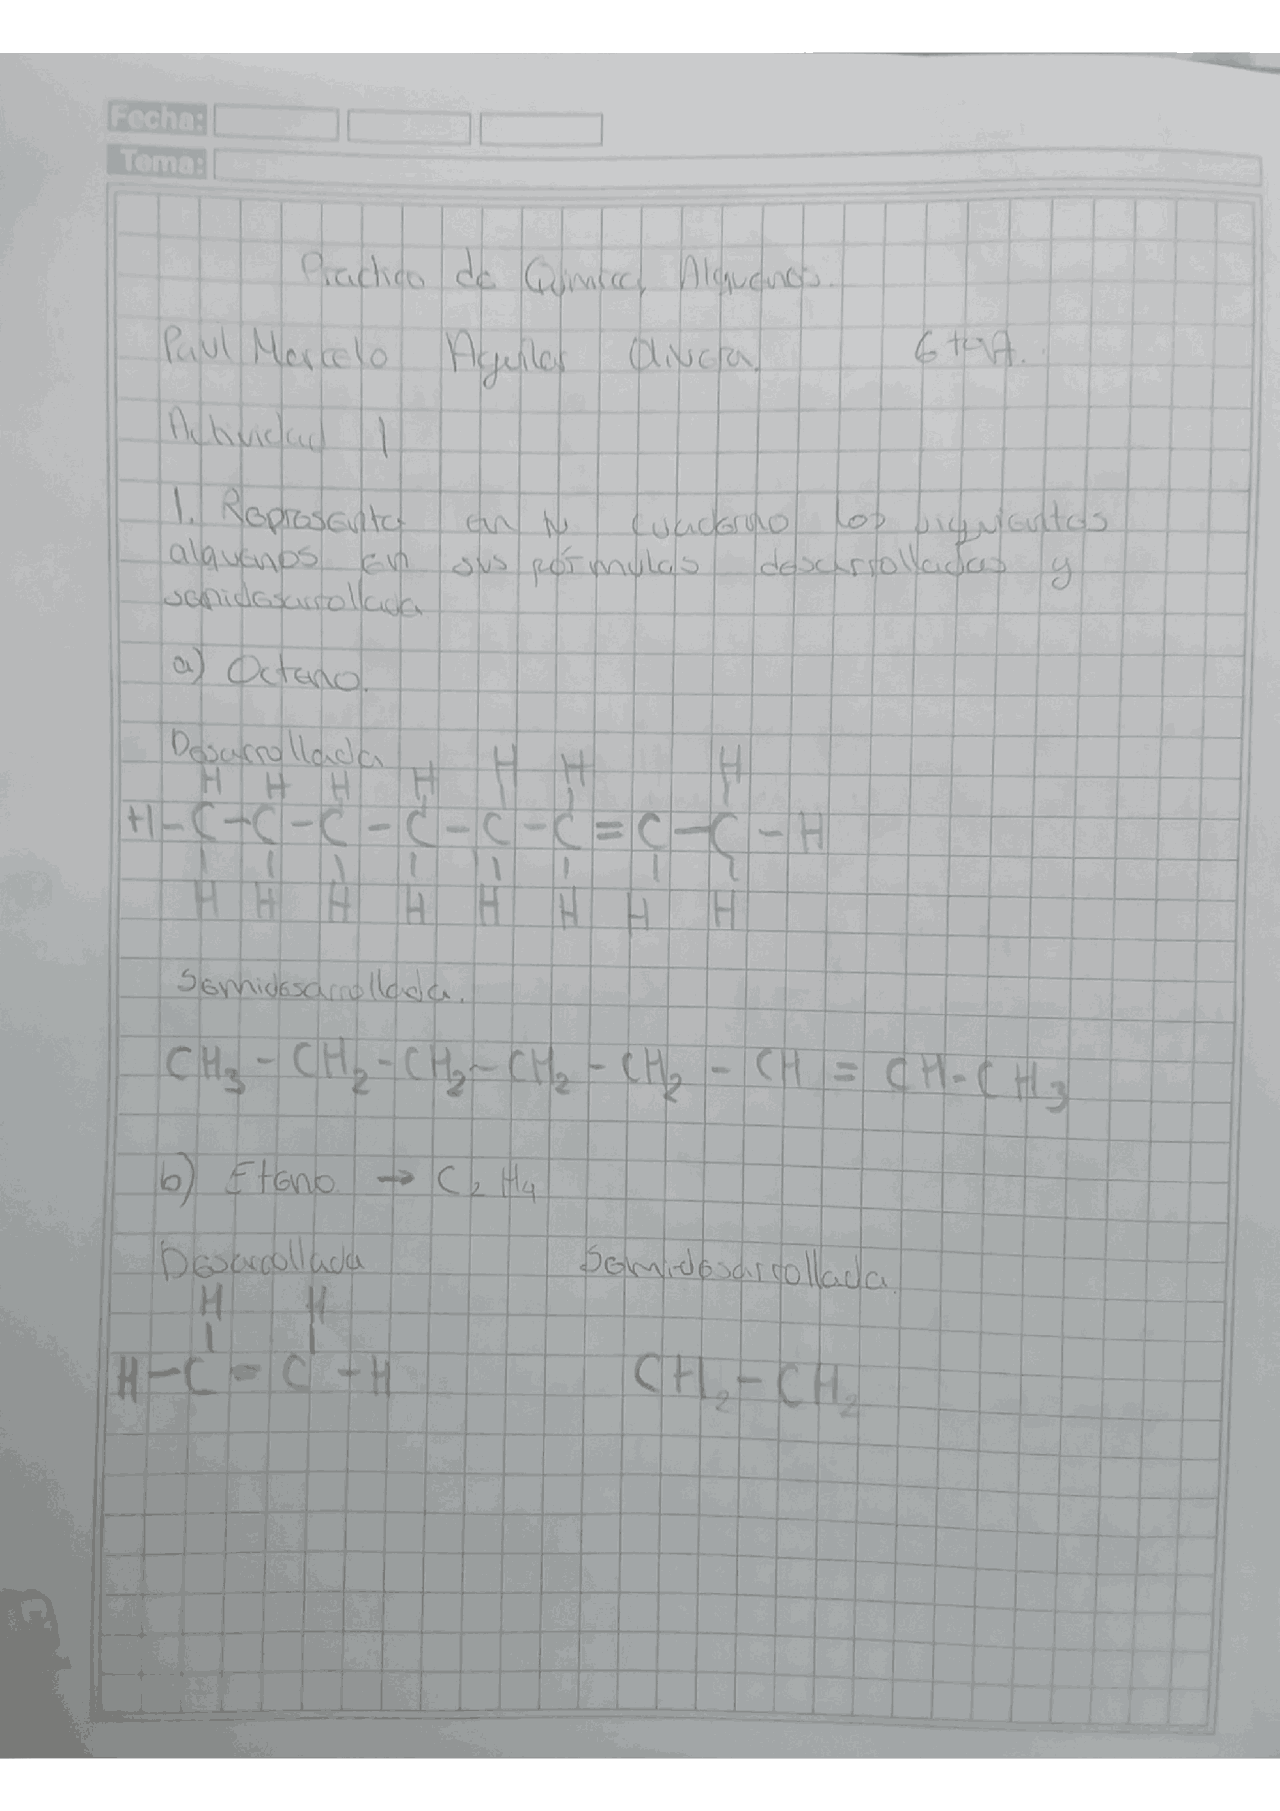 Fecha:
Tema:
Practico de Quimica, Alquenos.
Paul Marcelo Aguilar Olivera. 6to A.
Actividad 1
1. Representa en tu cuaderno los siguientes
alquenos en sus fórmulas descrrolladas y
semidesarrollada
a) Octeno.
Desarrollada
H H H H H H H
H-C-C-C-C-C-C=C-C-H
H H H H H H H H
Semidesarrollada.
CH3-CH2-CH2-CH2-CH2-CH=CH-CH3
b) Eteno → C2H4
Desarrollada Semidesarrollada.
H H
H-C=C-H CH2-CH2